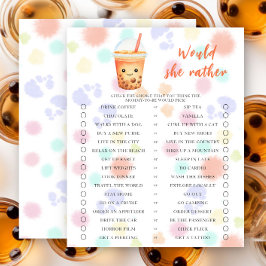 Would
she rather
CHECK THE CHOICE THAT YOU THINK THE
MOMMY-TO-BE WOULD PICK
DRINK COFFEE or SIP TEA
CHOCOLATE or VANILLA
WALKS WITH A DOG or CURL UP WITH A CAT
BUY A NEW PURSE or BUY NEW SHOES
LIVE IN THE CITY or LIVE IN THE COUNTRY
RELAX ON THE BEACH or HIKE UP A MOUNTAIN
GET UP EARLY or SLEEP IN LATE
LIFT WEIGHTS or DO CARDIO
COOK DINNER or WASH THE DISHES
TRAVEL THE WORLD or EXPLORE LOCALLY
STAY HOME or GO OUT
GO ON A CRUISE or GO CAMPING
ORDER AN APPETIZER or ORDER DESSERT
DRIVE THE CAR or BE THE PASSENGER
HORROR FILM or CHICK FLICK
GET A PIERCING or GET A TATTOO